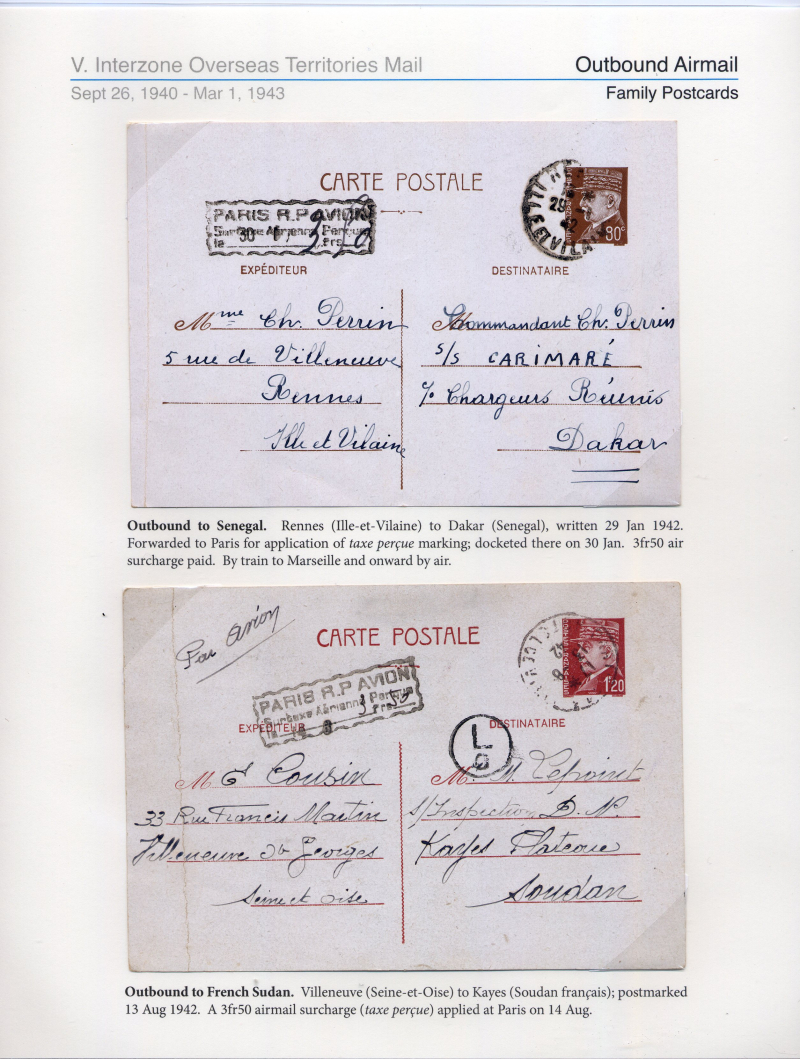 V. Interzone Overseas Territories Mail
Outbound Airmail
Sept 26, 1940 - Mar 1, 1943
Family Postcards
CARTE POSTALE
PARIS R.P AVION
Surtaxe Aérienne Perçue
le 30 Frs
3 50
80c
EXPÉDITEUR
DESTINATAIRE
Mme Ch. Perrin
5 rue de Villeneuve
Rennes
Ille et Vilaine
Commandant Ch. Perrin
S/S CARIMARÉ
c/o Chargeurs Réunis
Dakar
Outbound to Senegal. Rennes (Ille-et-Vilaine) to Dakar (Senegal), written 29 Jan 1942.
Forwarded to Paris for application of taxe perçue marking; docketed there on 30 Jan. 3fr50 air
surcharge paid. By train to Marseille and onward by air.
Par avion
CARTE POSTALE
1f20
PARIS R.P AVION
Surtaxe Aérienne Perçue
le 8 3 50 Frs
EXPÉDITEUR
DESTINATAIRE
L
M Cousin
33 Rue Francis Martin
Villeneuve St Georges
Seine et oise
M. M. Lepoint
S/Inspection D. N.
Kayes Plateau
Soudan
Outbound to French Sudan. Villeneuve (Seine-et-Oise) to Kayes (Soudan français); postmarked
13 Aug 1942. A 3fr50 airmail surcharge (taxe perçue) applied at Paris on 14 Aug.